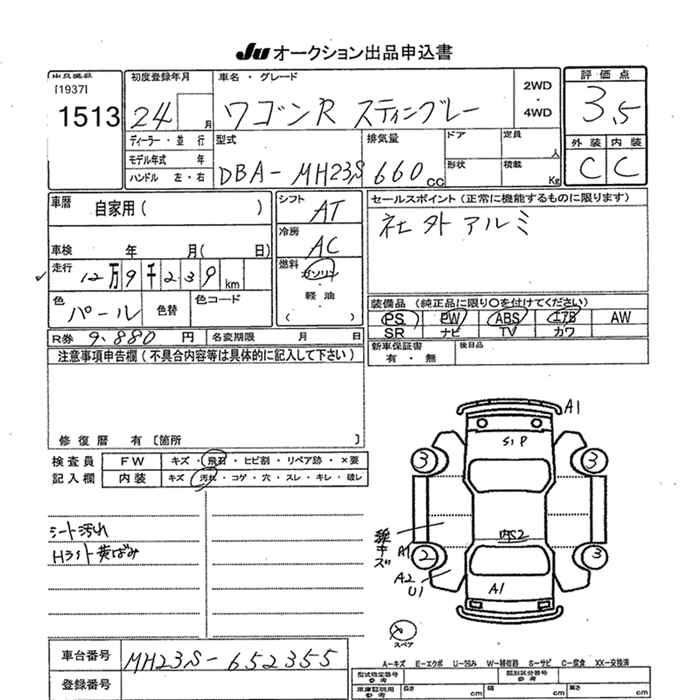 Ju オークション出品申込書
出品施設
[1937]
1513
初度登録年月
24 月
車名・グレード
ワゴンR スティングレー
2WD
・
4WD
評価点
3.5
外装 内装
C C
ディーラー・並行
モデル年式 年
ハンドル 左・右
型式
DBA-MH23S
排気量
660 cc
ドア
定員
人
形状
積載
Kg
車歴
自家用( )
車検 年 月( 日)
走行
12万9千239 km
色
パール
色替
色コード
シフト
AT
冷房
AC
燃料
ガソリン
・
軽油
セールスポイント(正常に機能するものに限ります)
社外アルミ
装備品(純正品に限り〇を付けてください)
PS PW ABS エアB AW
SR ナビ TV カワ
R券 9,880 円 名変期限 月 日
新車保証書
有・無
後日品
注意事項申告欄(不具合内容等は具体的に記入して下さい)
修復歴 有 [箇所 ]
検査員
記入欄
FW キズ・飛石・ヒビ割・リペア跡・×要
内装 キズ・汚れ・コゲ・穴・スレ・キレ・破レ
シート汚れ
Hライト黄ばみ
A1
S1P
3
3
2
3
A1
A2
U1
A1
スペア
A-キズ E-エクボ U-凹み W-補修跡 S-サビ C-腐食 XX-交換済
車台番号
MH23S-652355
登録番号
型式指定番号
参考
類別区分番号
参考
車庫証明用
参考
長さ cm 幅 cm 高さ cm